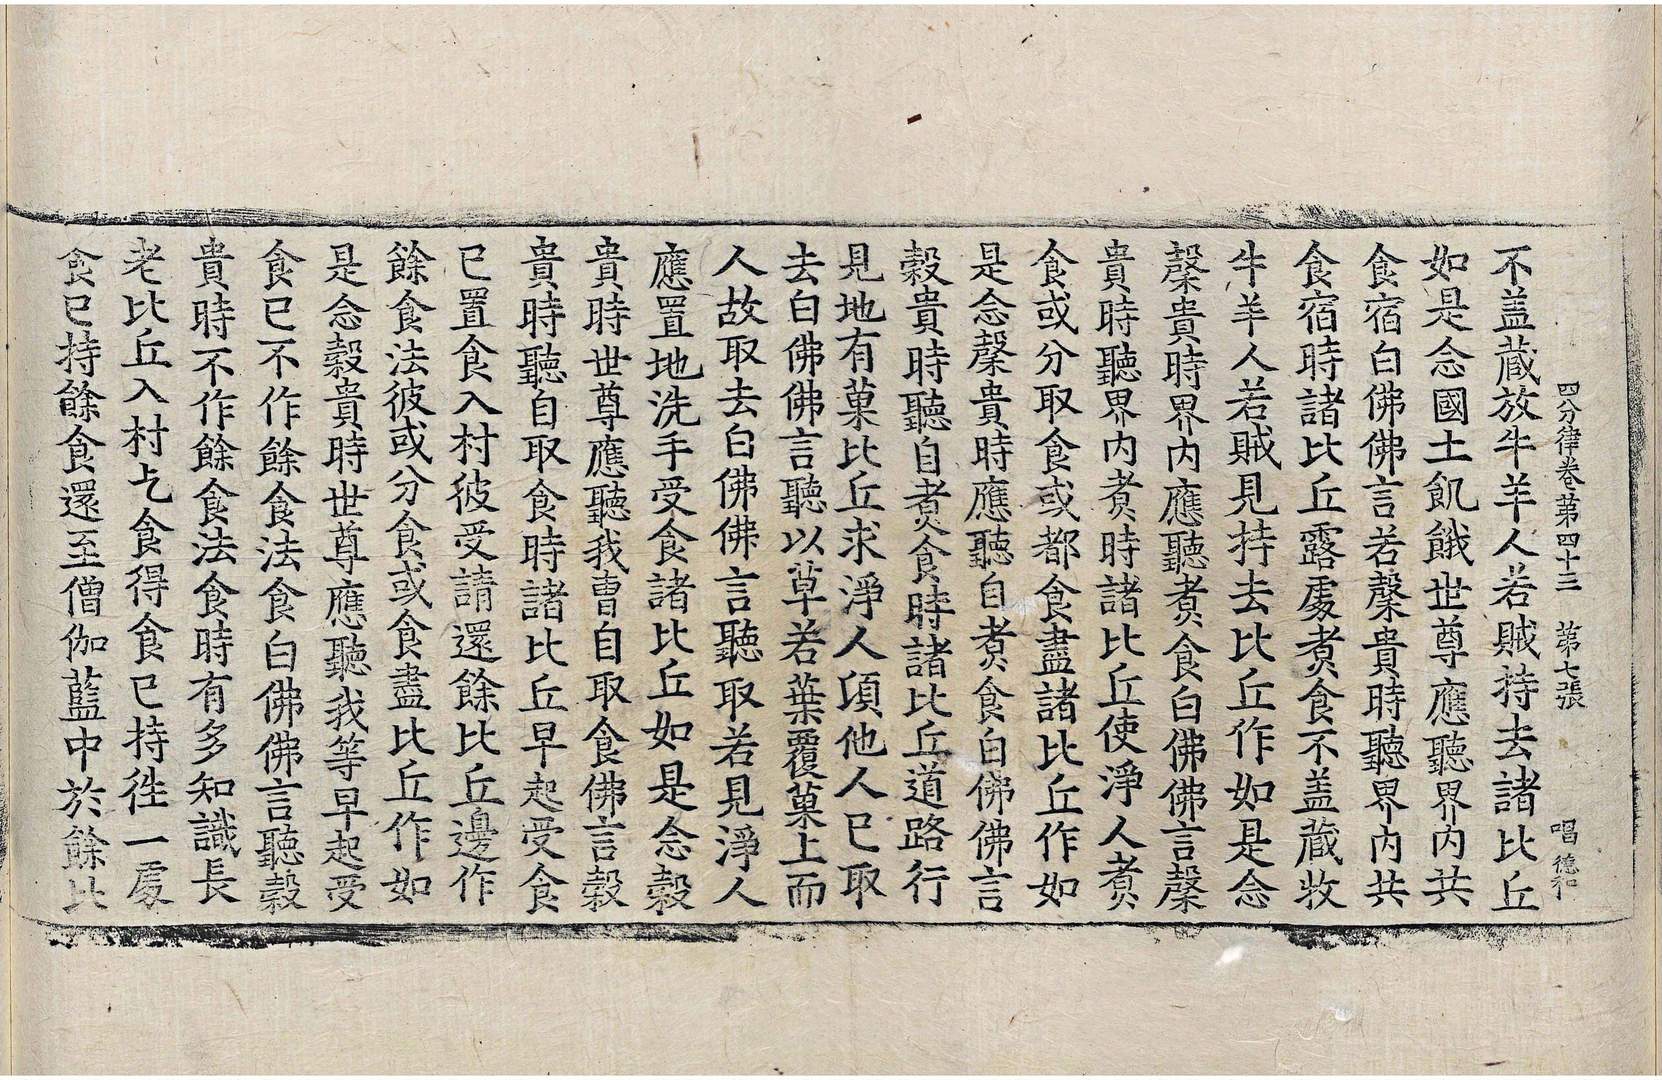 四分律卷第四十三 第七張 唱 德和
不盖蔵放牛羊人若賊持去諸比丘
如是念國土飢餓世尊應聽界内共
食宿白佛佛言若糓貴時聽界内共
食宿時諸比丘露處煮食不盖蔵牧
牛羊人若賊見持去比丘作如是念
糓貴時界内應聽煮食白佛佛言糓
貴時聽界内煮時諸比丘使淨人煮
食或分取食或都食盡諸比丘作如
是念糓貴時應聽自煮食白佛佛言
穀貴時聽自煮食時諸比丘道路行
見地有菓比丘求淨人頃他人已取
去白佛佛言聽以草若葉覆菓上而
人故取去白佛佛言聽取若見淨人
應置地洗手受食諸比丘如是念穀
貴時世尊應聽我曹自取食佛言穀
貴時聽自取食時諸比丘早起受食
已置食入村彼受請還餘比丘邊作
餘食法彼或分食或食盡比丘作如
是念穀貴時世尊應聽我等早起受
食已不作餘食法食白佛佛言聽穀
貴時不作餘食法食時有多知識長
老比丘入村乞食得食已持徃一處
食已持餘食還至僧伽藍中於餘比